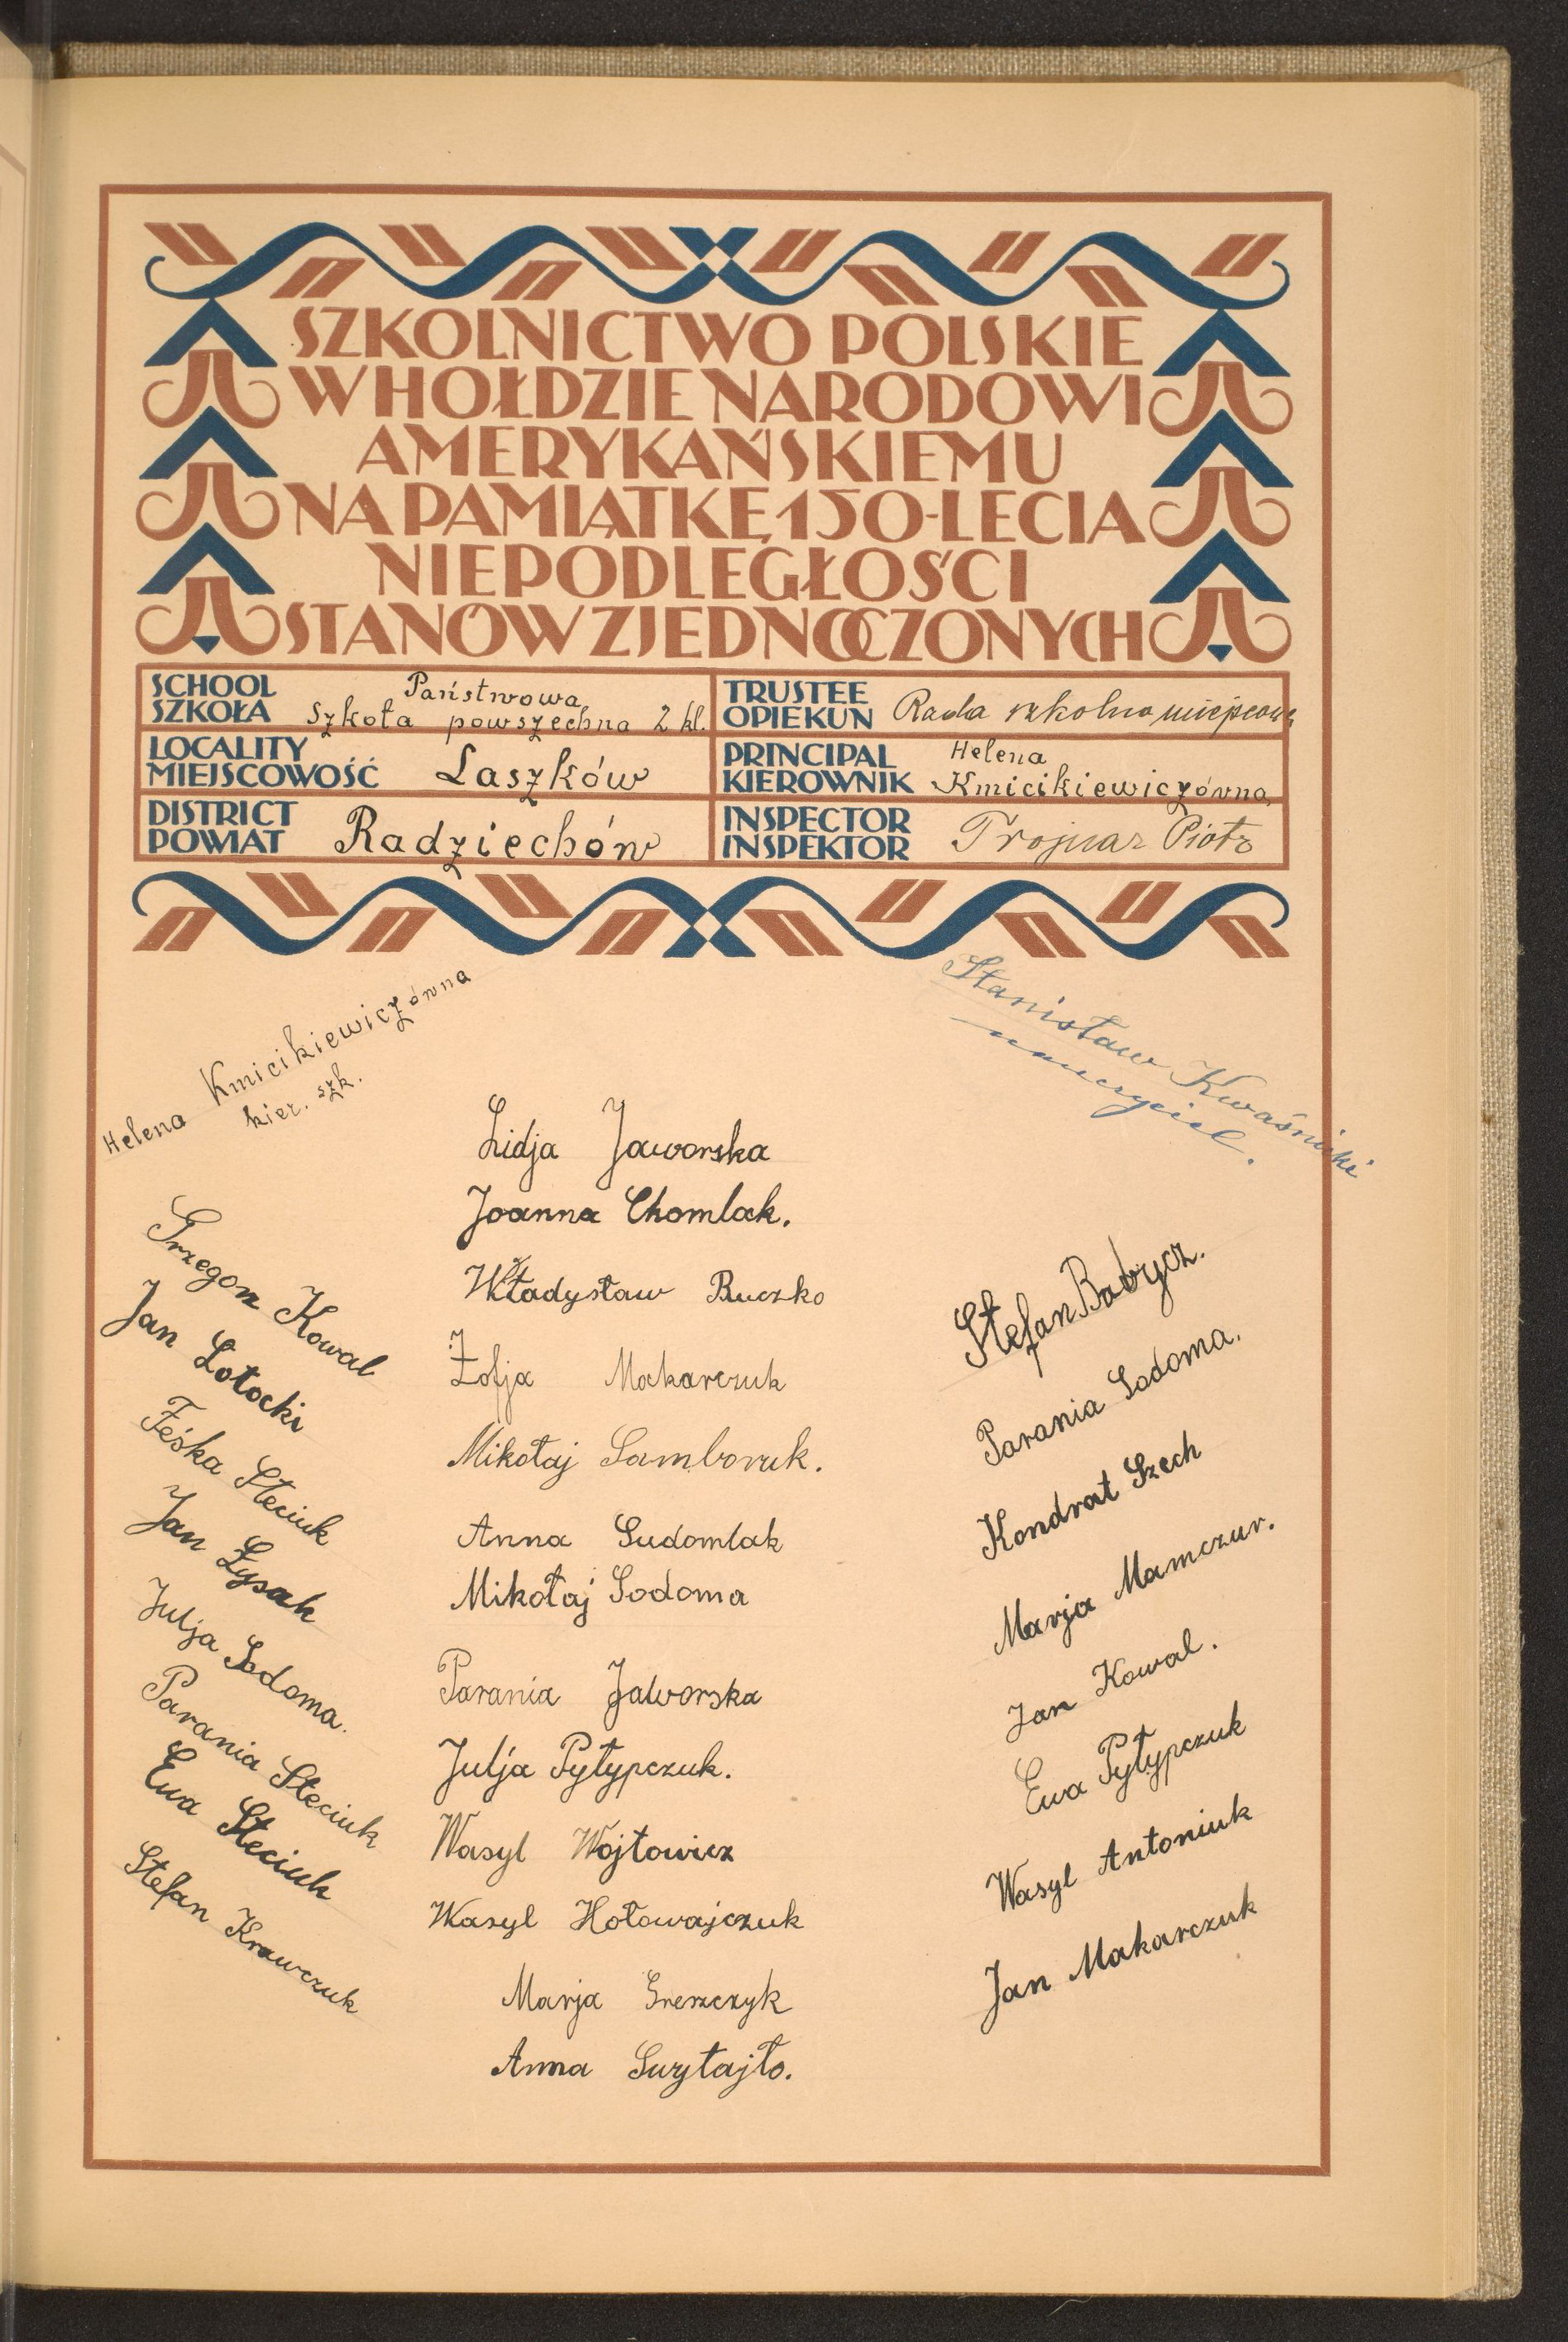 SZKOLNICTWO POLSKIE
W HOŁDZIE NARODOWI
AMERYKAŃSKIEMU
NA PAMIĄTKĘ 150-LECIA
NIEPODLEGŁOŚCI
STANÓW ZJEDNOCZONYCH
SCHOOL
SZKOŁA
Państwowa
Szkoła powszechna 2 kl.
TRUSTEE
OPIEKUN
Rada szkolna miejscowa
LOCALITY
MIEJSCOWOŚĆ
Laszków
PRINCIPAL
KIEROWNIK
Helena
Kmicikiewiczówna
DISTRICT
POWIAT
Radziechów
INSPECTOR
INSPEKTOR
Trojnar Piotr
Helena Kmicikiewiczówna
kier. szk.
Stanisław Kwaśnicki
nauczyciel.
Grzegorz Kowal
Jan Łotocki
Feśka Steciuk
Jan Łysak
Julja Sodoma.
Parania Steciuk
Ewa Steciuk
Stefan Krawczuk
Lidja Jaworska
Joanna Chomlak.
Władysław Buczko
Zofja Makarczuk
Mikołaj Samboruk.
Anna Sudomlak
Mikołaj Sodoma
Parania Jaworska
Julja Pyłypczuk.
Wasyl Wojtowicz
Wasyl Hołowajczuk
Marja
Anna
Stefan Babycz.
Parania Sodoma.
Kondrat Szech
Marja Mamczur.
Jan Kowal.
Ewa Pyłypczuk
Wasyl Antoniuk
Jan Makarczuk